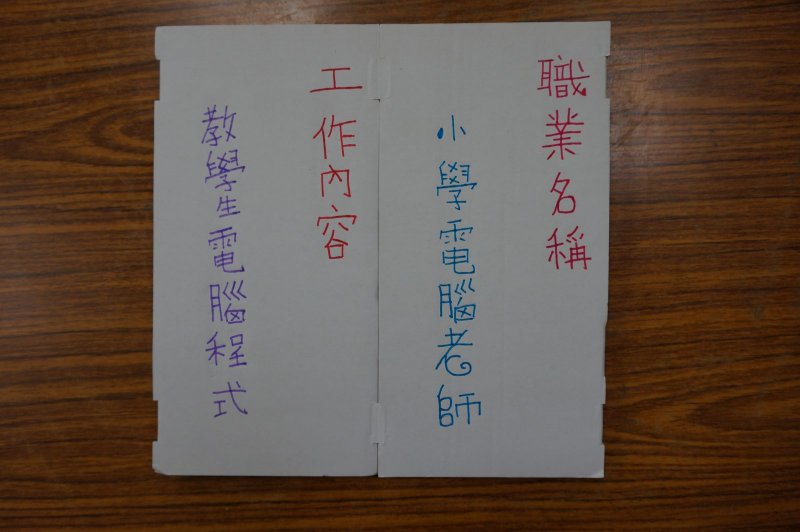 職業名稱
小學電腦老師
工作內容
教學生電腦程式